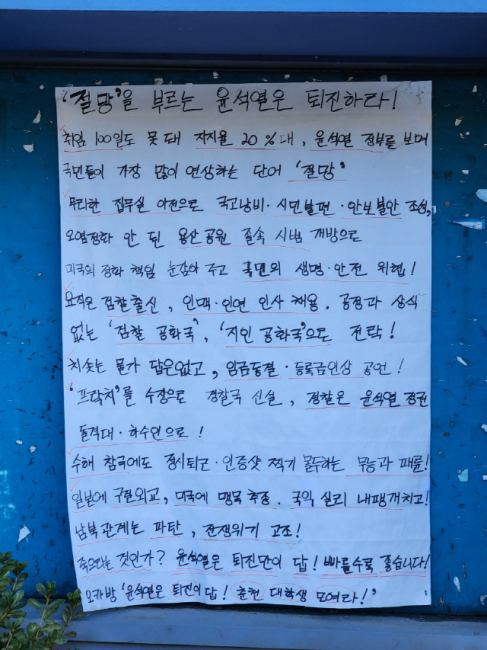 '절망'을 부르는 윤석열은 퇴진하라!
취임 100일도 못 돼 지지율 20%대, 윤석열 정부를 보며
국민들이 가장 많이 연상하는 단어 '절망'
무리한 집무실 이전으로 국고낭비·시민불편·안보불안 조성,
오염정화 안 된 용산공원 졸속 시범 개방으로
미국의 정화 책임 눈감아 주고 국민의 생명·안전 위협!
요직은 검찰출신, 인맥·인연 인사 채용. 공정과 상식
없는 '검찰 공화국', '지인 공화국'으로 전락!
치솟는 물가 답은없고, 임금동결·등록금인상 공언!
'프락치'를 수장으로 경찰국 신설, 경찰은 윤석열 정권
돌격대·하수인으로!
수해 참국에도 정시퇴근·인증샷 찍기 몰두하는 무능과 패륜!
일본에 구현외교, 미국에 맹목 추종. 국익 실리 내팽개치고!
남북관계는 파탄, 전쟁위기 고조!
죽으라는 것인가? 윤석열은 퇴진만이 답! 빠를수록 좋습니다!
오카방 '윤석열은 퇴진이 답! 춘천 대학생 모여라!'